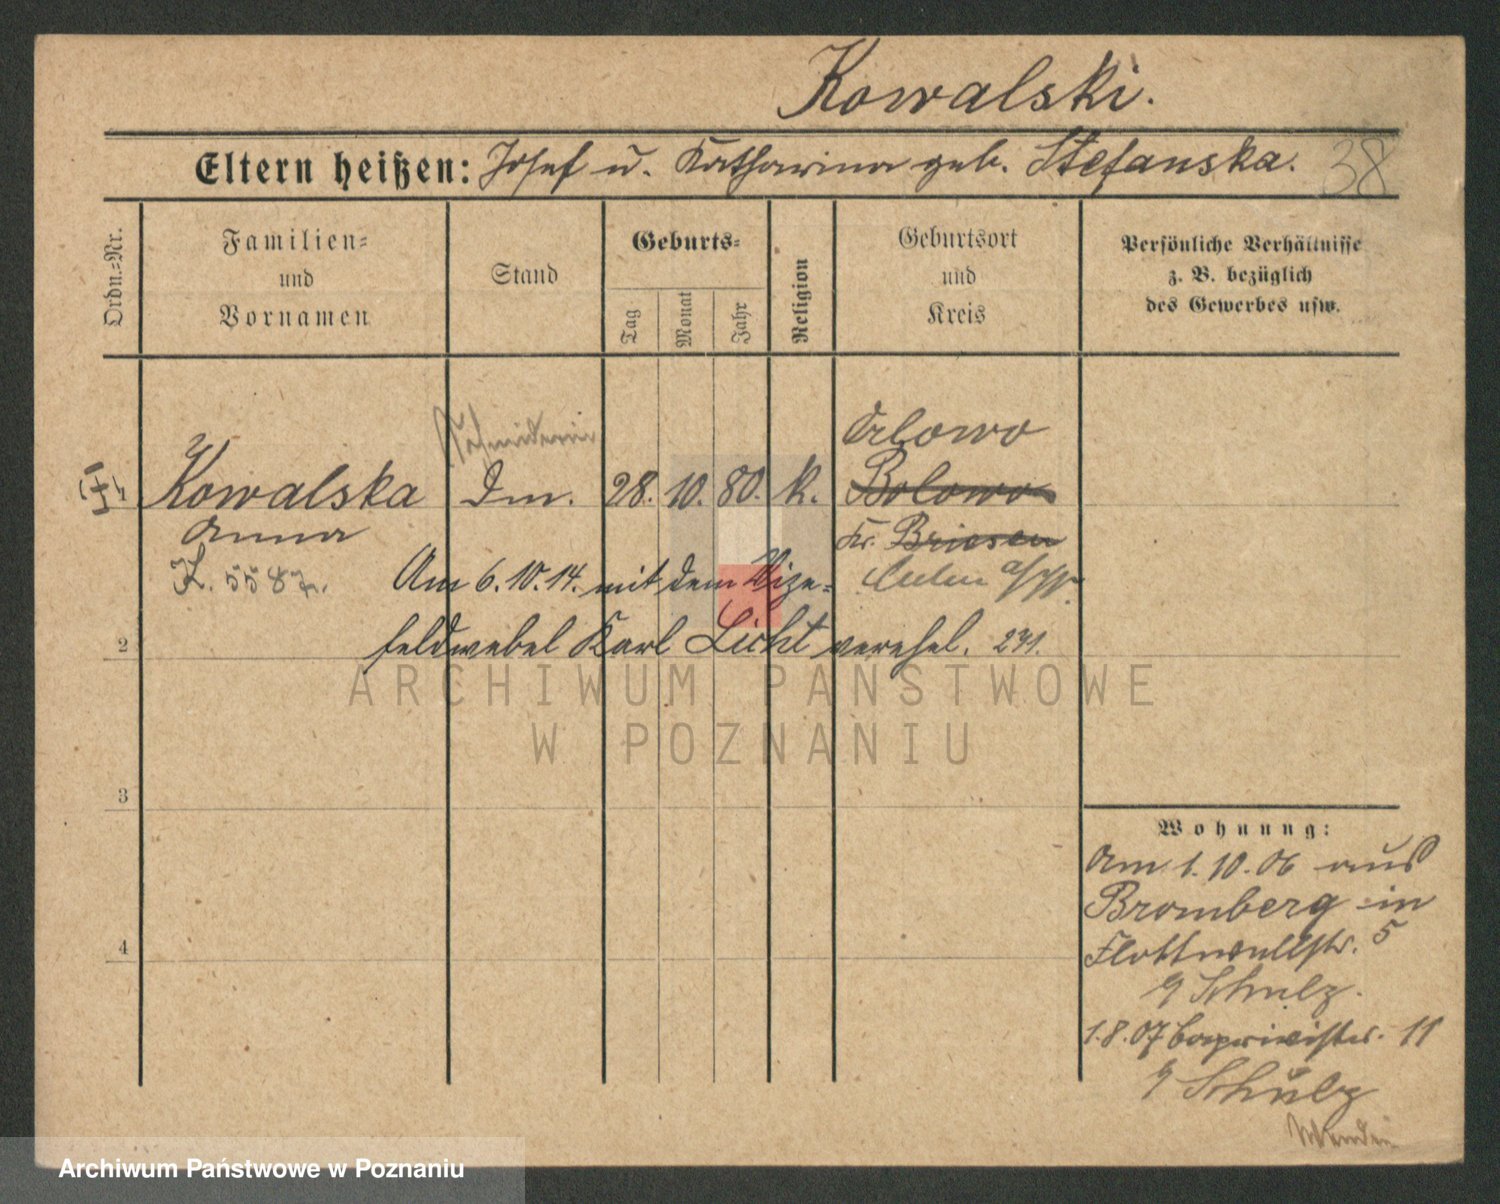 Kowalski.
Eltern heißen: Josef u. Katharina geb. Stefanska. 38
Ordn.=Nr.
Familien=
und
Vornamen
Stand
Geburts=
Tag
Monat
Jahr
Religion
Geburtsort
und
Kreis
Persönliche Verhältnisse
z. B. bezüglich
des Gewerbes usw.
Schneiderin
Orlowo
Kowalska Dm. 28. 10. 80. k. Bolowo
Anna
Kr. Briesen
K. 5587.
Culm
Am 6.10.14. mit dem Vize=
feldwebel Karl Licht verehel. 231.
2
3
4
Wohnung:
Am 1.10.06 aus
Bromberg in
Flottwellstr. 5
Schulz.
1.8.07 Caprivistr. 11
Schulz
ARCHIWUM PAŃSTWOWE
W POZNANIU
Archiwum Państwowe w Poznaniu